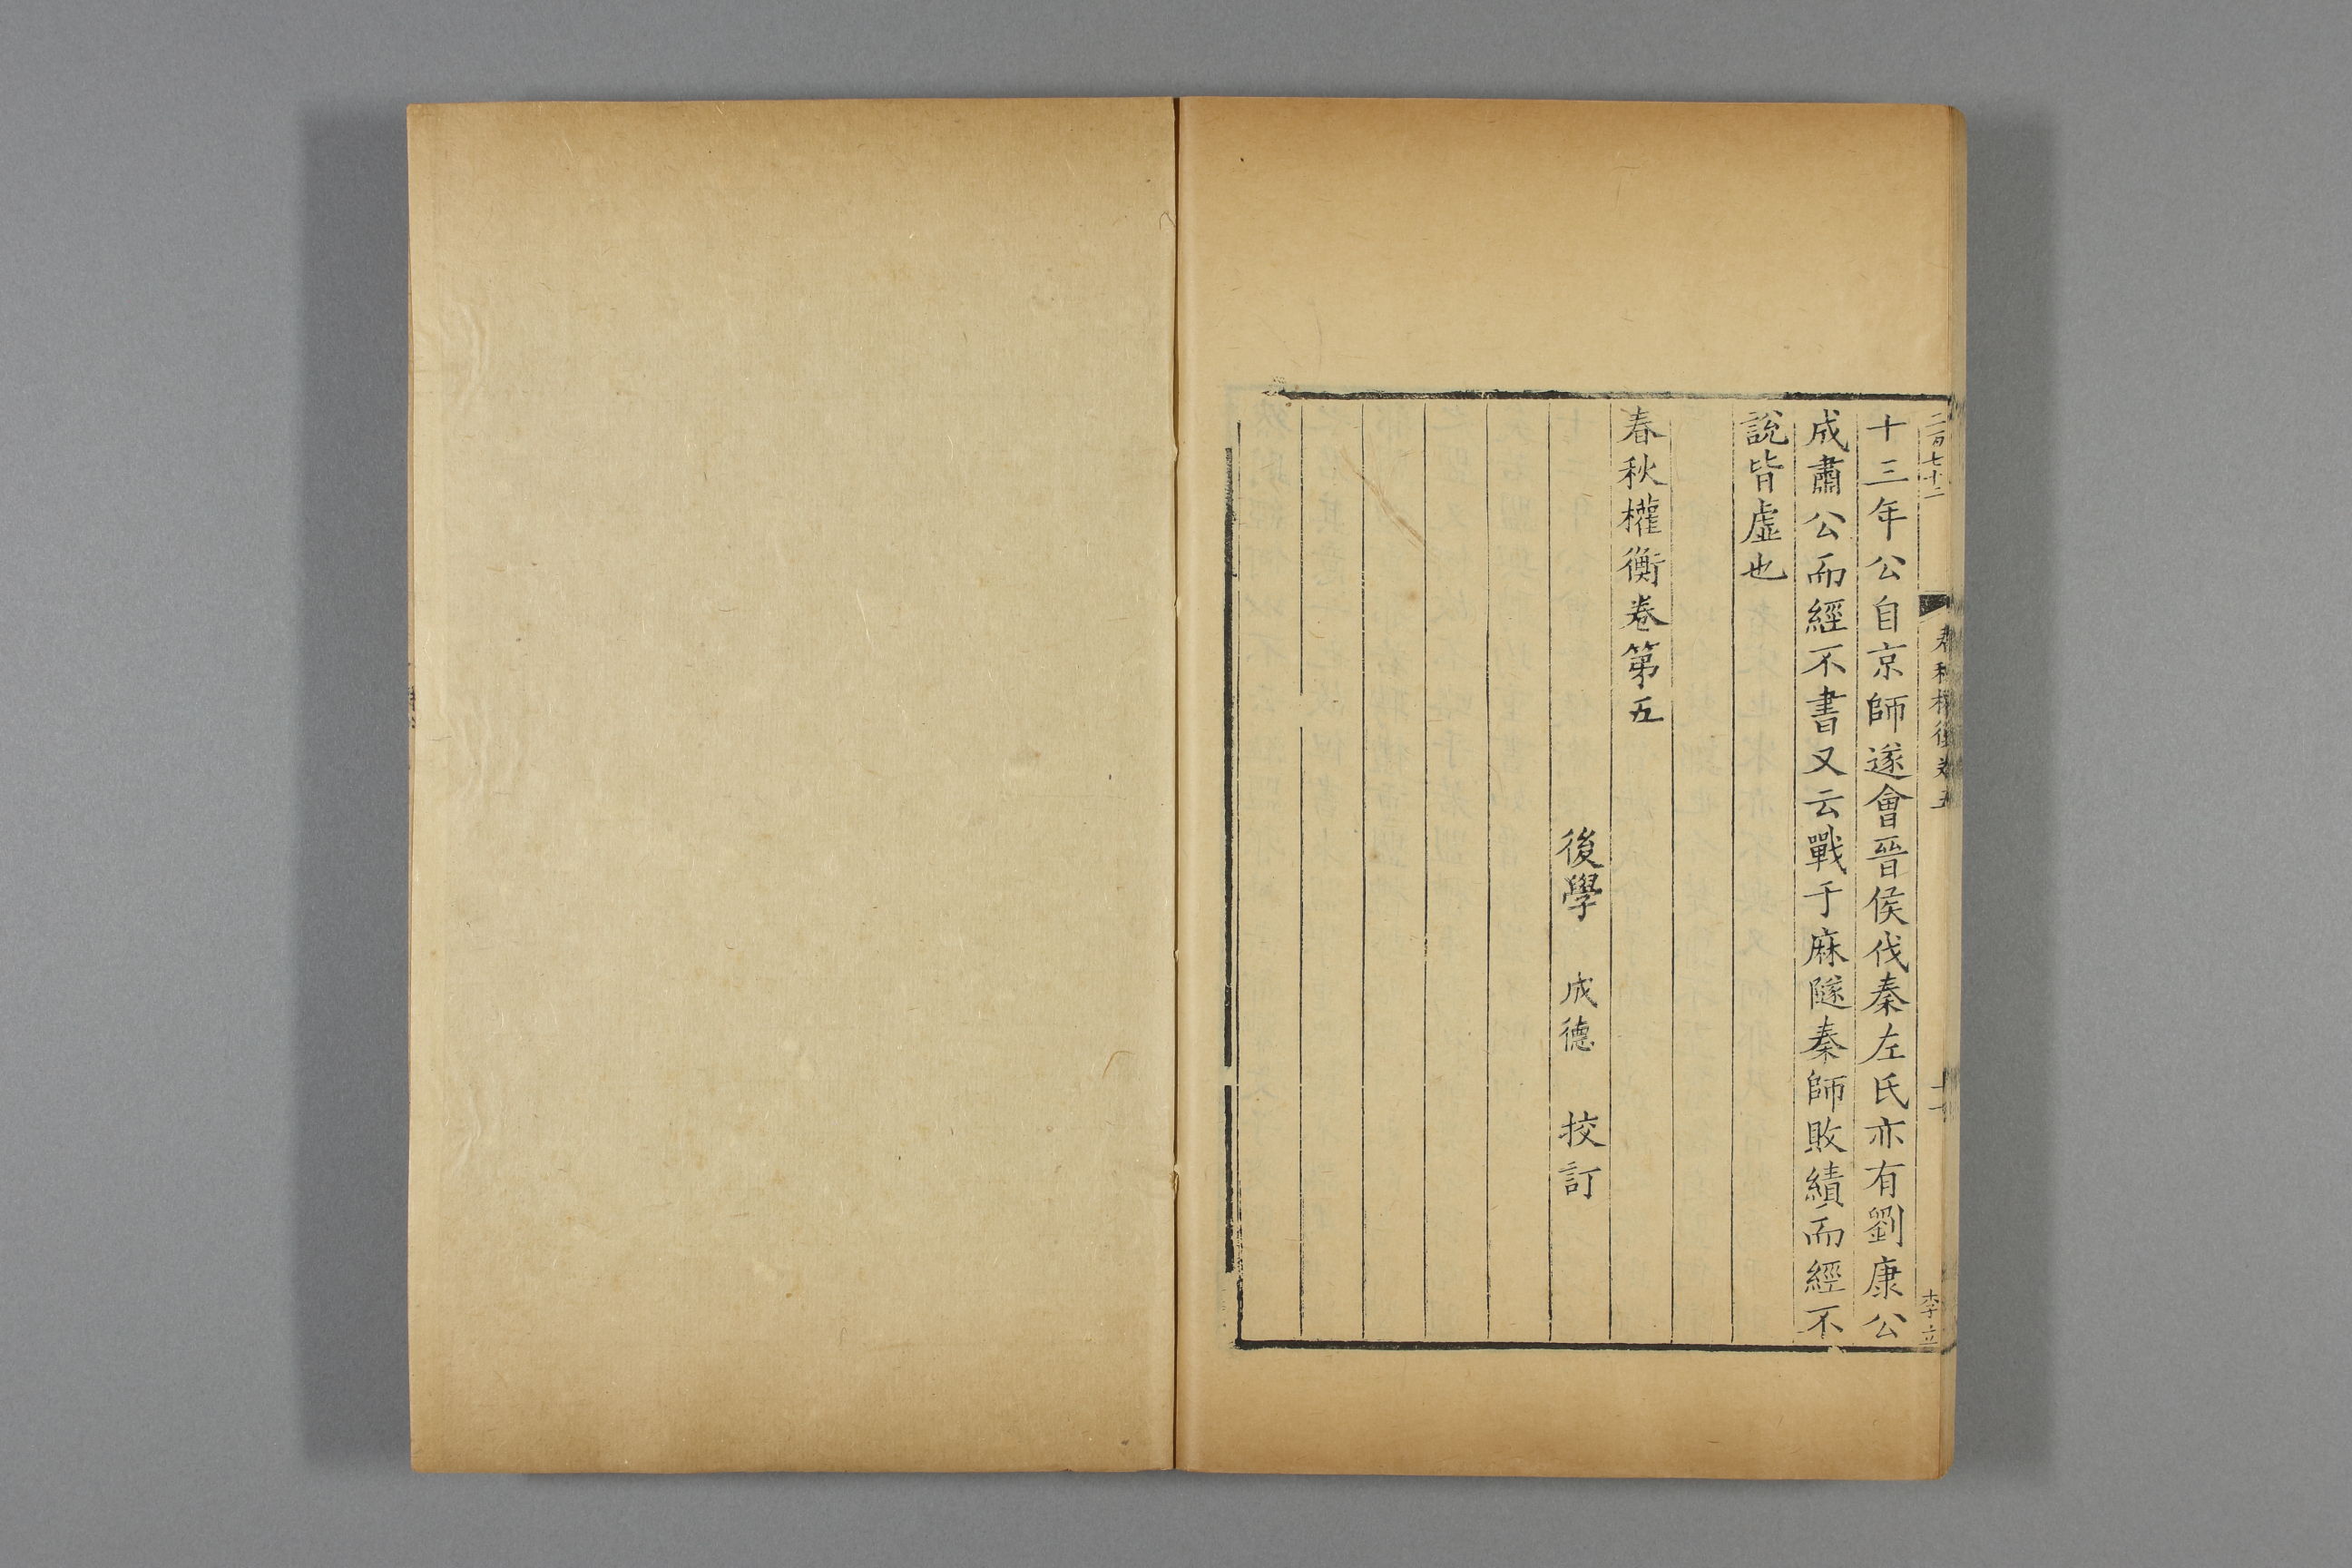 二百七十二
春秋權衡卷五
十一
李立
十三年公自京師遂會晉侯伐秦左氏亦有劉康公
成肅公而經不書又云戰于麻隧秦師敗績而經不
說皆虛也
春秋權衡卷第五
後學 成德 挍訂